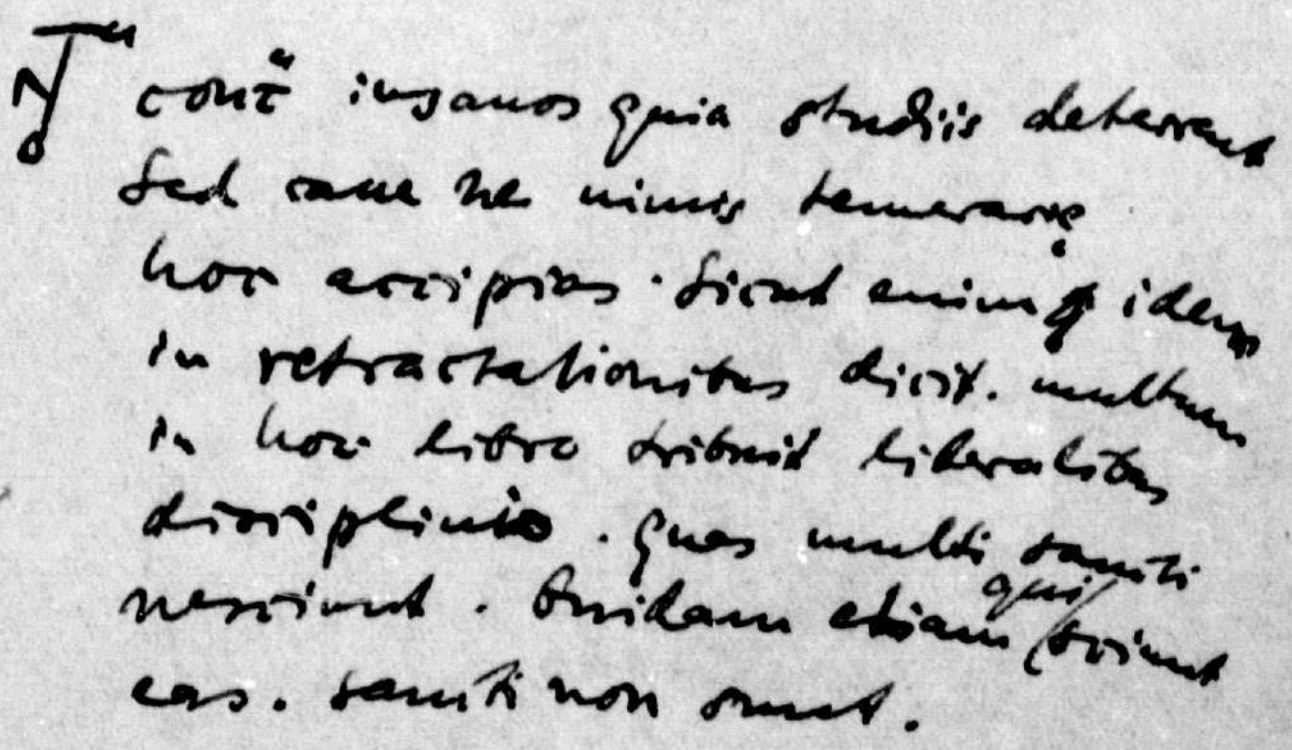 contᵃ insanos quia studiis deterrent
Sed caue ne nimis temerarię
hoc accipias . Sicut enim idem
in retractationibus dicit. multum
in hoc libro tribuit liberalibus
disciplinis . Quas multi sancti
nesciunt . Quidam etiam qui sciunt
eas . sancti non sunt .